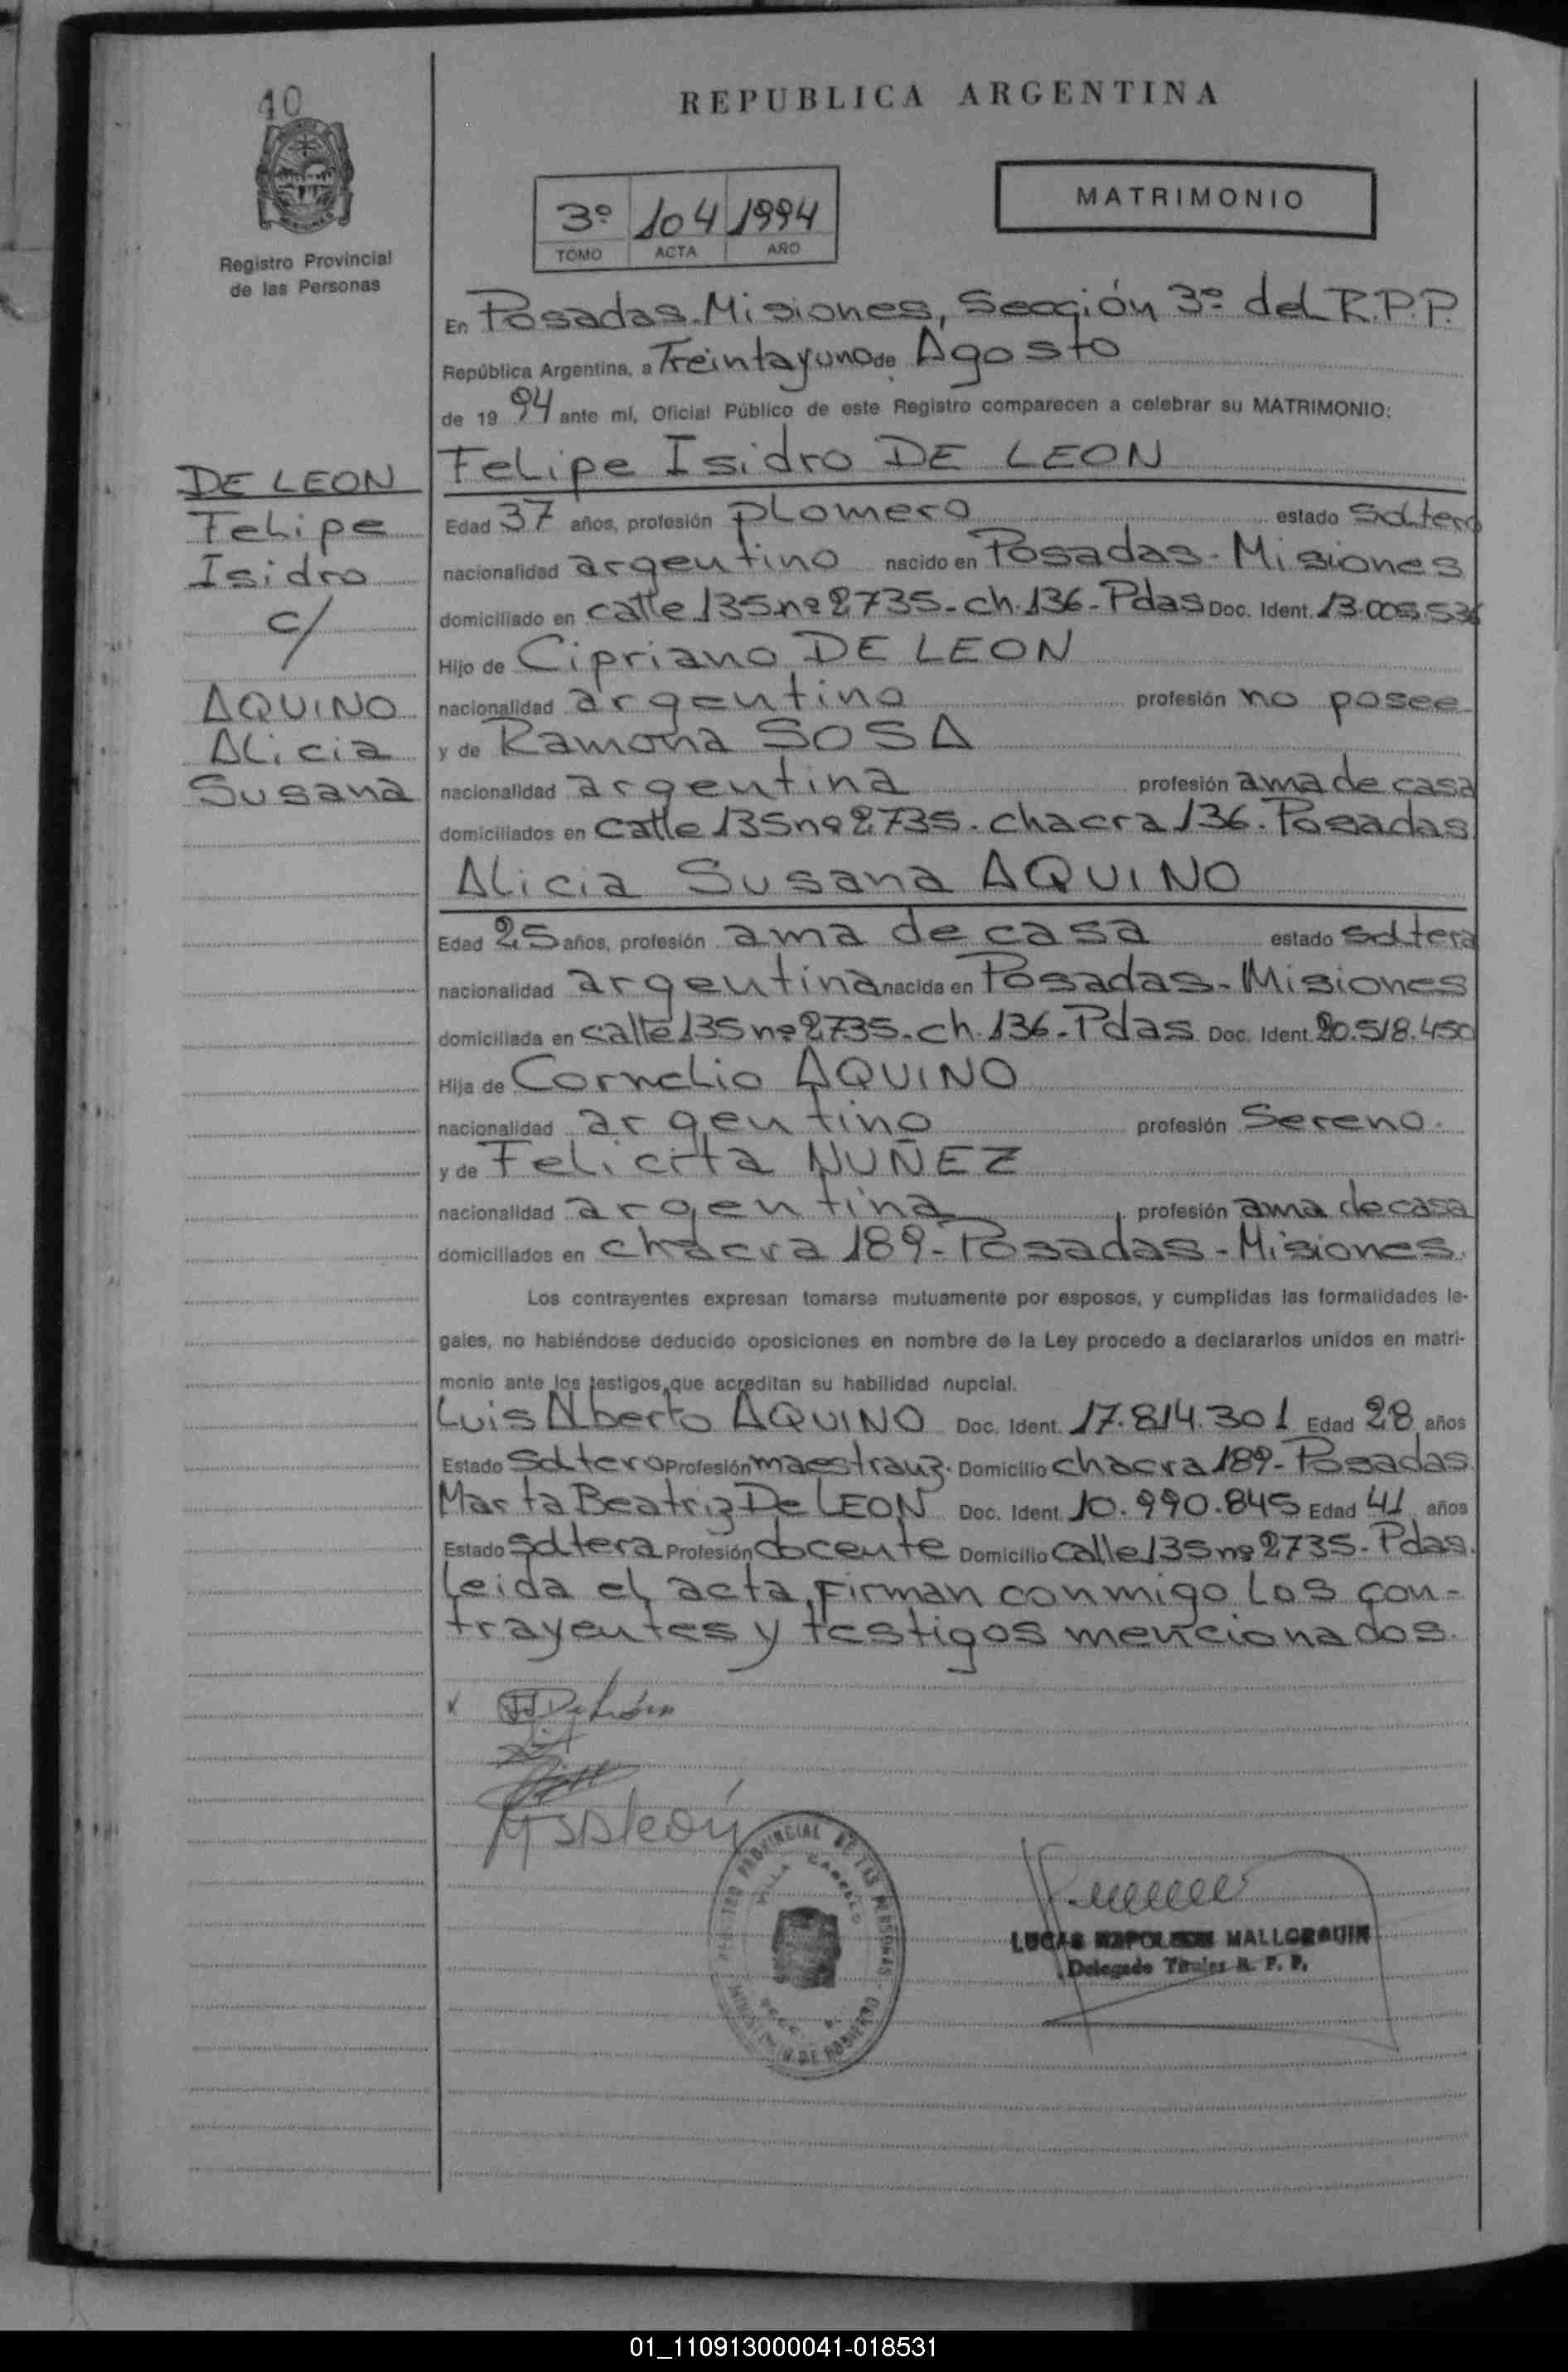 10
REPUBLICA ARGENTINA
MATRIMONIO
3º 104 1994
TOMO ACTA AÑO
Registro Provincial
de las Personas
En Posadas-Misiones, Sección 3º del R.P.P.
República Argentina, a Treintayuno de Agosto
de 1994 ante mí, Oficial Público de este Registro comparecen a celebrar su MATRIMONIO:
DE LEON
Felipe
Isidro
c/
AQUINO
Alicia
Susana
Felipe Isidro DE LEON
Edad 37 años, profesión plomero estado soltero
nacionalidad argentino nacido en Posadas-Misiones
domiciliado en calle 135 nº 2735-ch.136-Pdas Doc. Ident. 13.005.536
Hijo de Cipriano DE LEON
nacionalidad argentino profesión no posee
y de Ramona SOSA
nacionalidad argentina profesión ama de casa
domiciliados en calle 135 nº 2735-chacra 136-Posadas
Alicia Susana AQUINO
Edad 25 años, profesión ama de casa estado soltera
nacionalidad argentina nacida en Posadas-Misiones
domiciliada en calle 135 nº 2735-ch.136-Pdas Doc. Ident. 20.518.450
Hija de Cornelio AQUINO
nacionalidad argentino profesión Sereno.
y de Felicita NUÑEZ
nacionalidad argentina profesión ama de casa
domiciliados en chacra 189-Posadas-Misiones.
Los contrayentes expresan tomarse mutuamente por esposos, y cumplidas las formalidades le-
gales, no habiéndose deducido oposiciones en nombre de la Ley procedo a declararlos unidos en matri-
monio ante los testigos, que acreditan su habilidad nupcial.
Luis Alberto AQUINO Doc. Ident. 17.814.301 Edad 28 años
Estado soltero Profesión maestranz. Domicilio chacra 189-Posadas
Marta Beatriz De LEON Doc. Ident. 10.990.845 Edad 41 años
Estado soltera Profesión docente Domicilio calle 135 nº 2735-Pdas.
leida el acta, firman conmigo los con-
trayentes y testigos mencionados.
De León
REGISTRO PROVINCIAL DE LAS PERSONAS
MINISTERIO DE GOBIERNO
VILLA CABELLO
LUCAS NAPOLEON MALLORQUIN
Delegado Titular R. P. P.
01_110913000041-018531